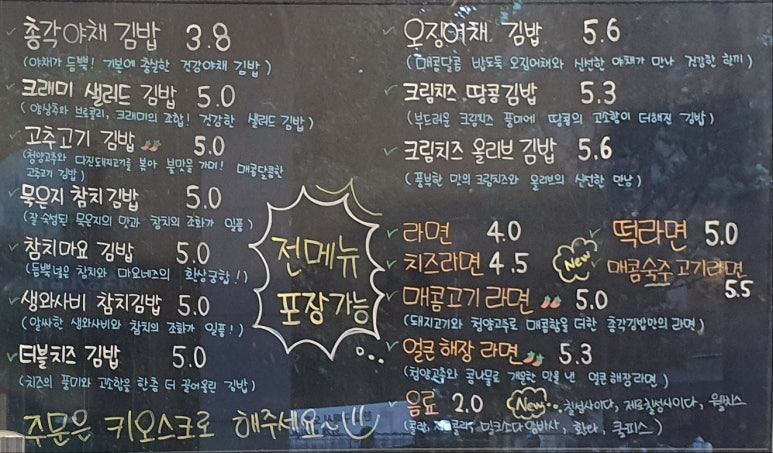 총각야채 김밥 3.8
(야채가 듬뿍! 기본에 충실한 건강야채 김밥)
크래미 샐러드 김밥 5.0
(양상추와 브로콜리, 크래미의 조합! 건강한 샐러드 김밥)
고추고기 김밥 5.0
(청양고추와 다진돼지고기를 볶아 불맛을 가미! 매콤달콤한
고추고기 김밥)
묵은지 참치김밥 5.0
(잘 숙성된 묵은지의 맛과 참치의 조화가 일품)
참치마요 김밥 5.0
(듬뿍넣은 참치와 마요네즈의 환상궁합!)
생와사비 참치김밥 5.0
(알싸한 생와사비와 참치의 조화가 일품!)
더블치즈 김밥 5.0
(치즈의 풍미와 고소함을 한층 더 끌어올린 김밥)
주문은 키오스크로 해주세요~
전메뉴
포장가능
오징어채 김밥 5.6
(매콤달콤 밥도둑 오징어채와 신선한 야채가 만나 건강한 한끼)
크림치즈 땅콩김밥 5.3
(부드러운 크림치즈 풍미에 땅콩의 고소함이 더해진 김밥)
크림치즈 올리브 김밥 5.6
(풍부한 맛의 크림치즈와 올리브의 신선한 만남)
라면 4.0
떡라면 5.0
치즈라면 4.5
New
매콤숙주고기라면
5.5
매콤고기라면 5.0
(돼지고기와 청양고추로 매콤함을 더한 총각김밥만의 라면)
얼큰해장라면 5.3
(청양고추와 콩나물로 개운한 맛을 낸 얼큰해장라면)
음료 2.0 New... 칠성사이다, 제로칠성사이다, 웰치스
(콜라, 밀크소다암바사, 환타, 쿨피스)